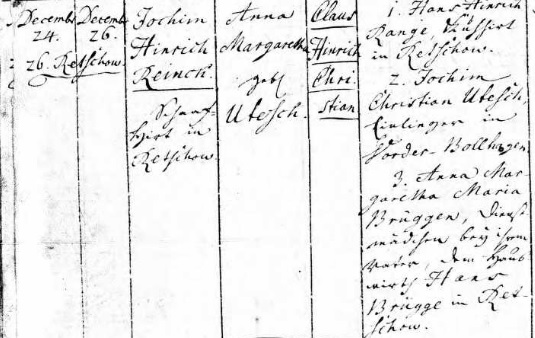 Decembr
24.
26. Retschow.
Decembr
26.
Jochim
Hinrich
Reinck.
Schaaf-
hirt in
Retschow
Anna
Margaretha
geb
Ubesch.
Claus
Hinrich
Chri
stian
1. Hans Hinrich
Range,
in Retschow.
2. Jochim
Christian Ubesch,
Einlieger in
Vorder-Bollhagen
3. Anna Mar-
garetha Maria
Brüggen, Dienst
mädchen bey ihrem
Vater, dem Haus
wirth Hans
Brügge in Ret-
schow.